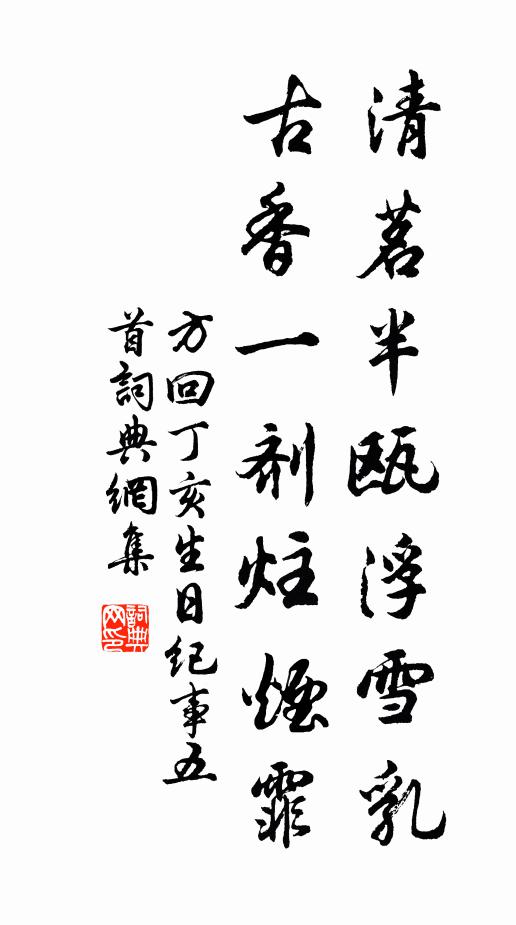 清茗半瓯浮雪乳
古香一剂炷煙霏
方回丁亥生日纪事五
首詞典網集
詞典
网印